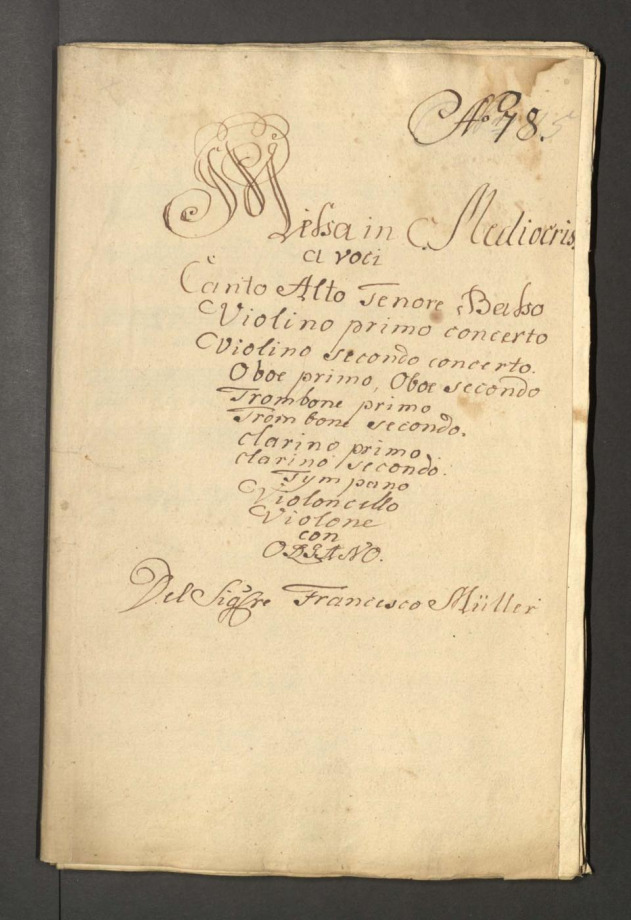 No 78.
Missa in C. Mediocris
a voci
Canto Alto Tenore Basso
Violino primo concerto
Violino secondo concerto.
Oboe primo, Oboe secondo
Trombone primo
Trombone secondo.
clarino primo
clarino secondo.
Tympano
Violoncello
Violone
con
ORGANO.
Del Sigre Francesco Müller